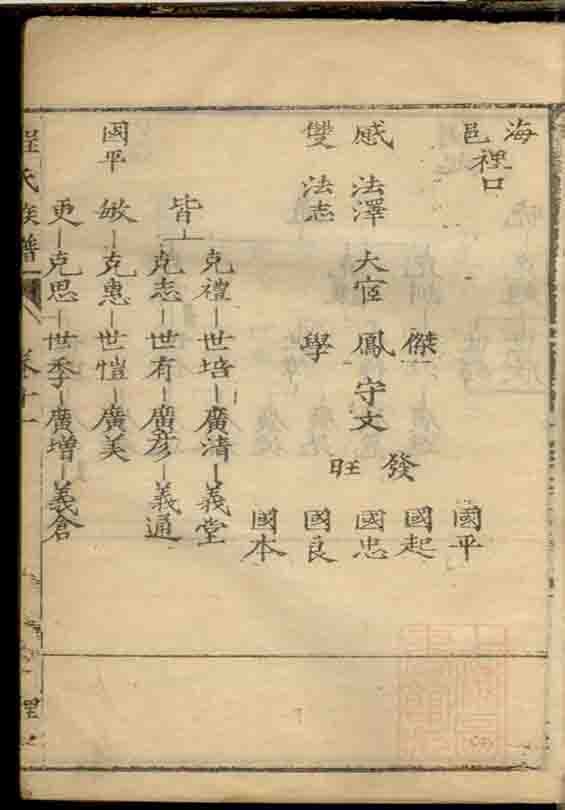 海邑
裡口
國平
傑
發
國起
感
法澤
大宦
鳳
守文
國忠
雙
法志
學
旺
國良
國本
皆
克禮
世培
廣渚
義堂
克志
世有
廣彦
義通
國平
敏
克惠
世愷
廣美
更
克思
世季
廣增
義倉
程氏族譜
卷十一